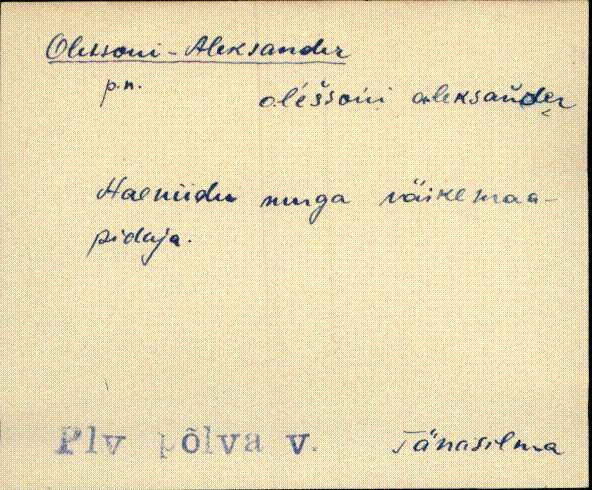 Olessoni-Aleksander
p.n.
oleśsoni aleksander
Haeniidu nurga väikemaa-
pidaja.
Plv põlva v. Tänasilma